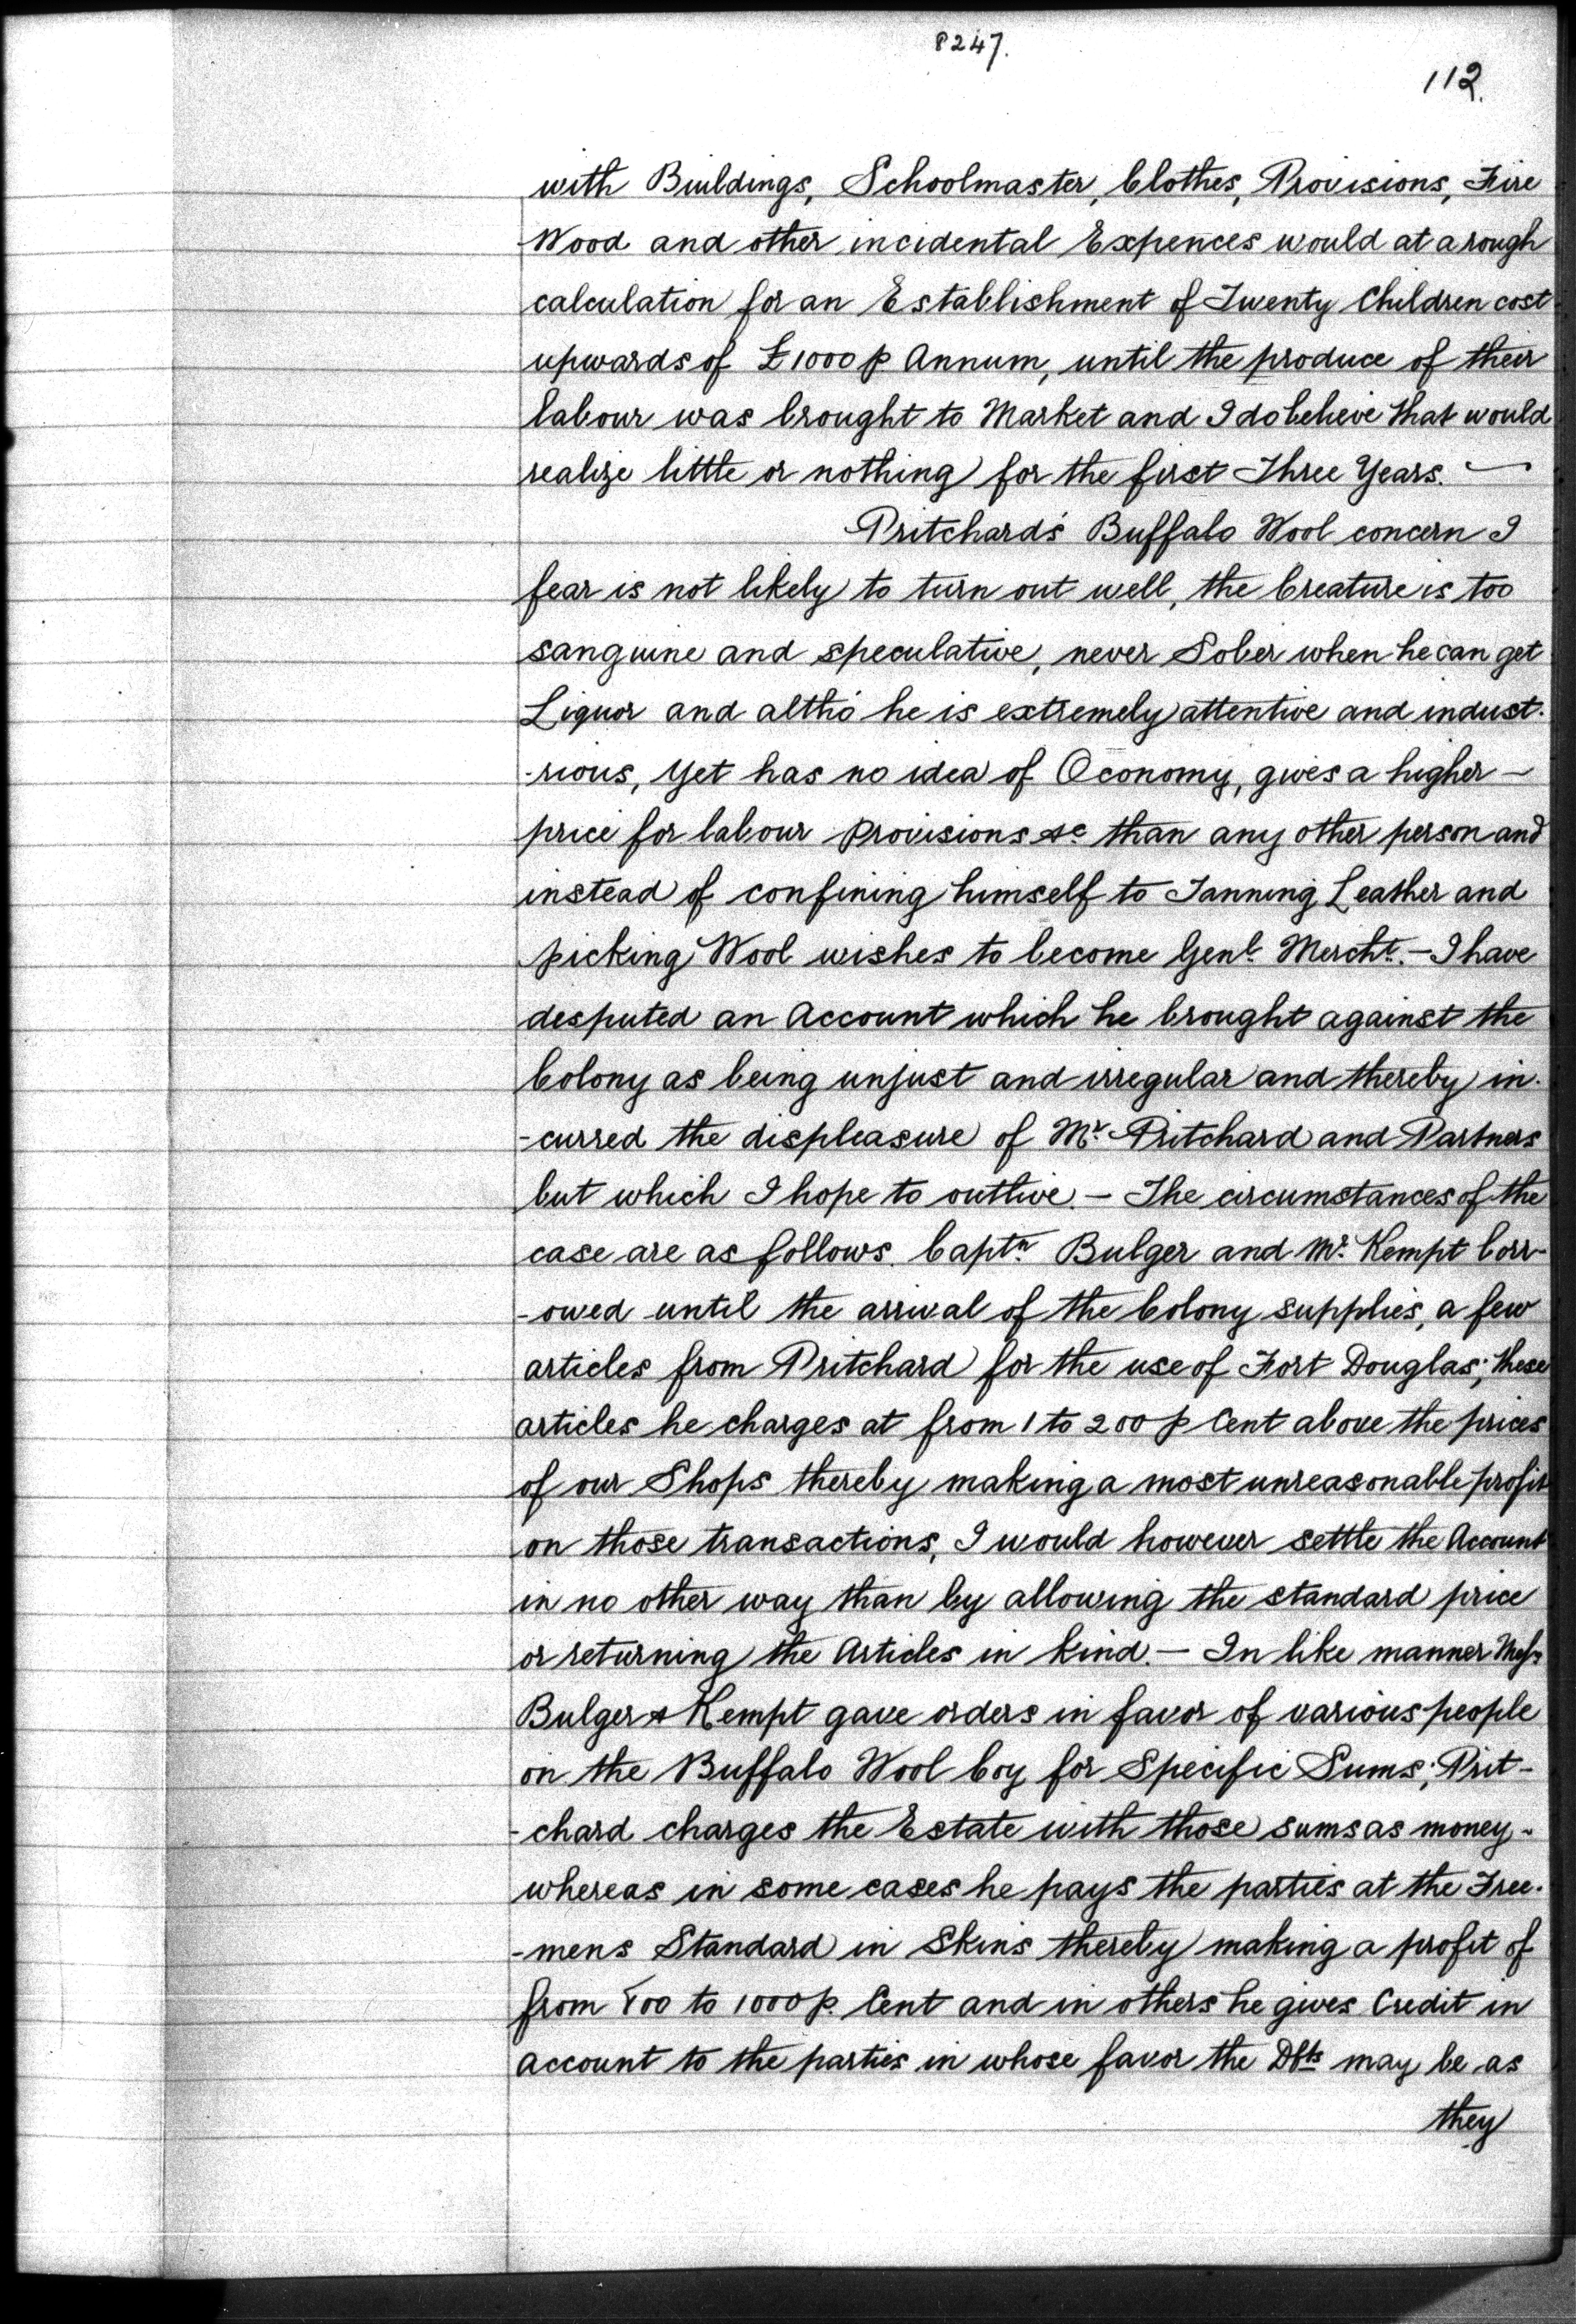 8247.
112.
with Buildings, Schoolmaster, Clothes, Provisions, Fire
Wood and other incidental Expences would at a rough
calculation for an Establishment of Twenty Children cost
upwards of £1000 p Annum, until the produce of their
labour was brought to Market and I do believe that would
realize little or nothing for the first Three Years. —
Pritchard's Buffalo Wool concern I
fear is not likely to turn out well, the Creature is too
sanguine and speculative, never Sober when he can get
Liquor and altho' he is extremely attentive and indust-
-rious, yet has no idea of Oconomy, gives a higher —
price for labour Provisions &c than any other person and
instead of confining himself to Tanning Leather and
picking Wool wishes to become Genl. Mercht. — I have
desputed an Account which he brought against the
Colony as being unjust and irregular and thereby in-
-curred the displeasure of Mr. Pritchard and Partners
but which I hope to outlive. — The circumstances of the
case are as follows. Captn. Bulger and Mr. Kempt borr-
-owed until the arrival of the Colony supplies, a few
articles from Pritchard for the use of Fort Douglas; these
articles he charges at from 1 to 200 p Cent above the prices
of our Shops thereby making a most unreasonable profit
on those transactions, I would however settle the Account
in no other way than by allowing the standard price
or returning the Articles in kind. — In like manner Messrs
Bulger & Kempt gave orders in favor of various people
on the Buffalo Wool Coy for Specific Sums; Prit-
-chard charges the Estate with those sums as money -
whereas in some cases he pays the parties at the Free-
-mens Standard in Skins thereby making a profit of
from 800 to 1000 p. Cent and in others he gives Credit in
account to the parties in whose favor the Dfts may be as
they